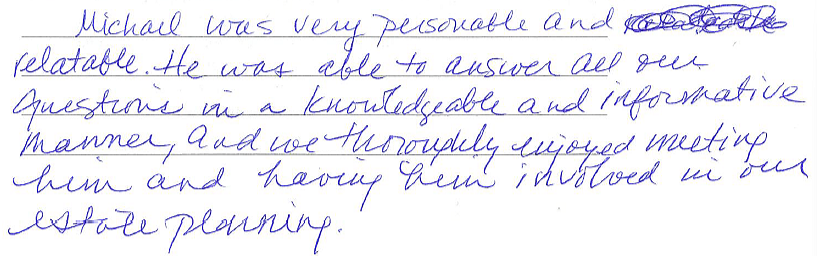 Michael was very personable and
relatable. He was able to answer all our
questions in a knowledgeable and informative
manner, and we thoroughly enjoyed meeting
him and having him involved in our
estate planning.